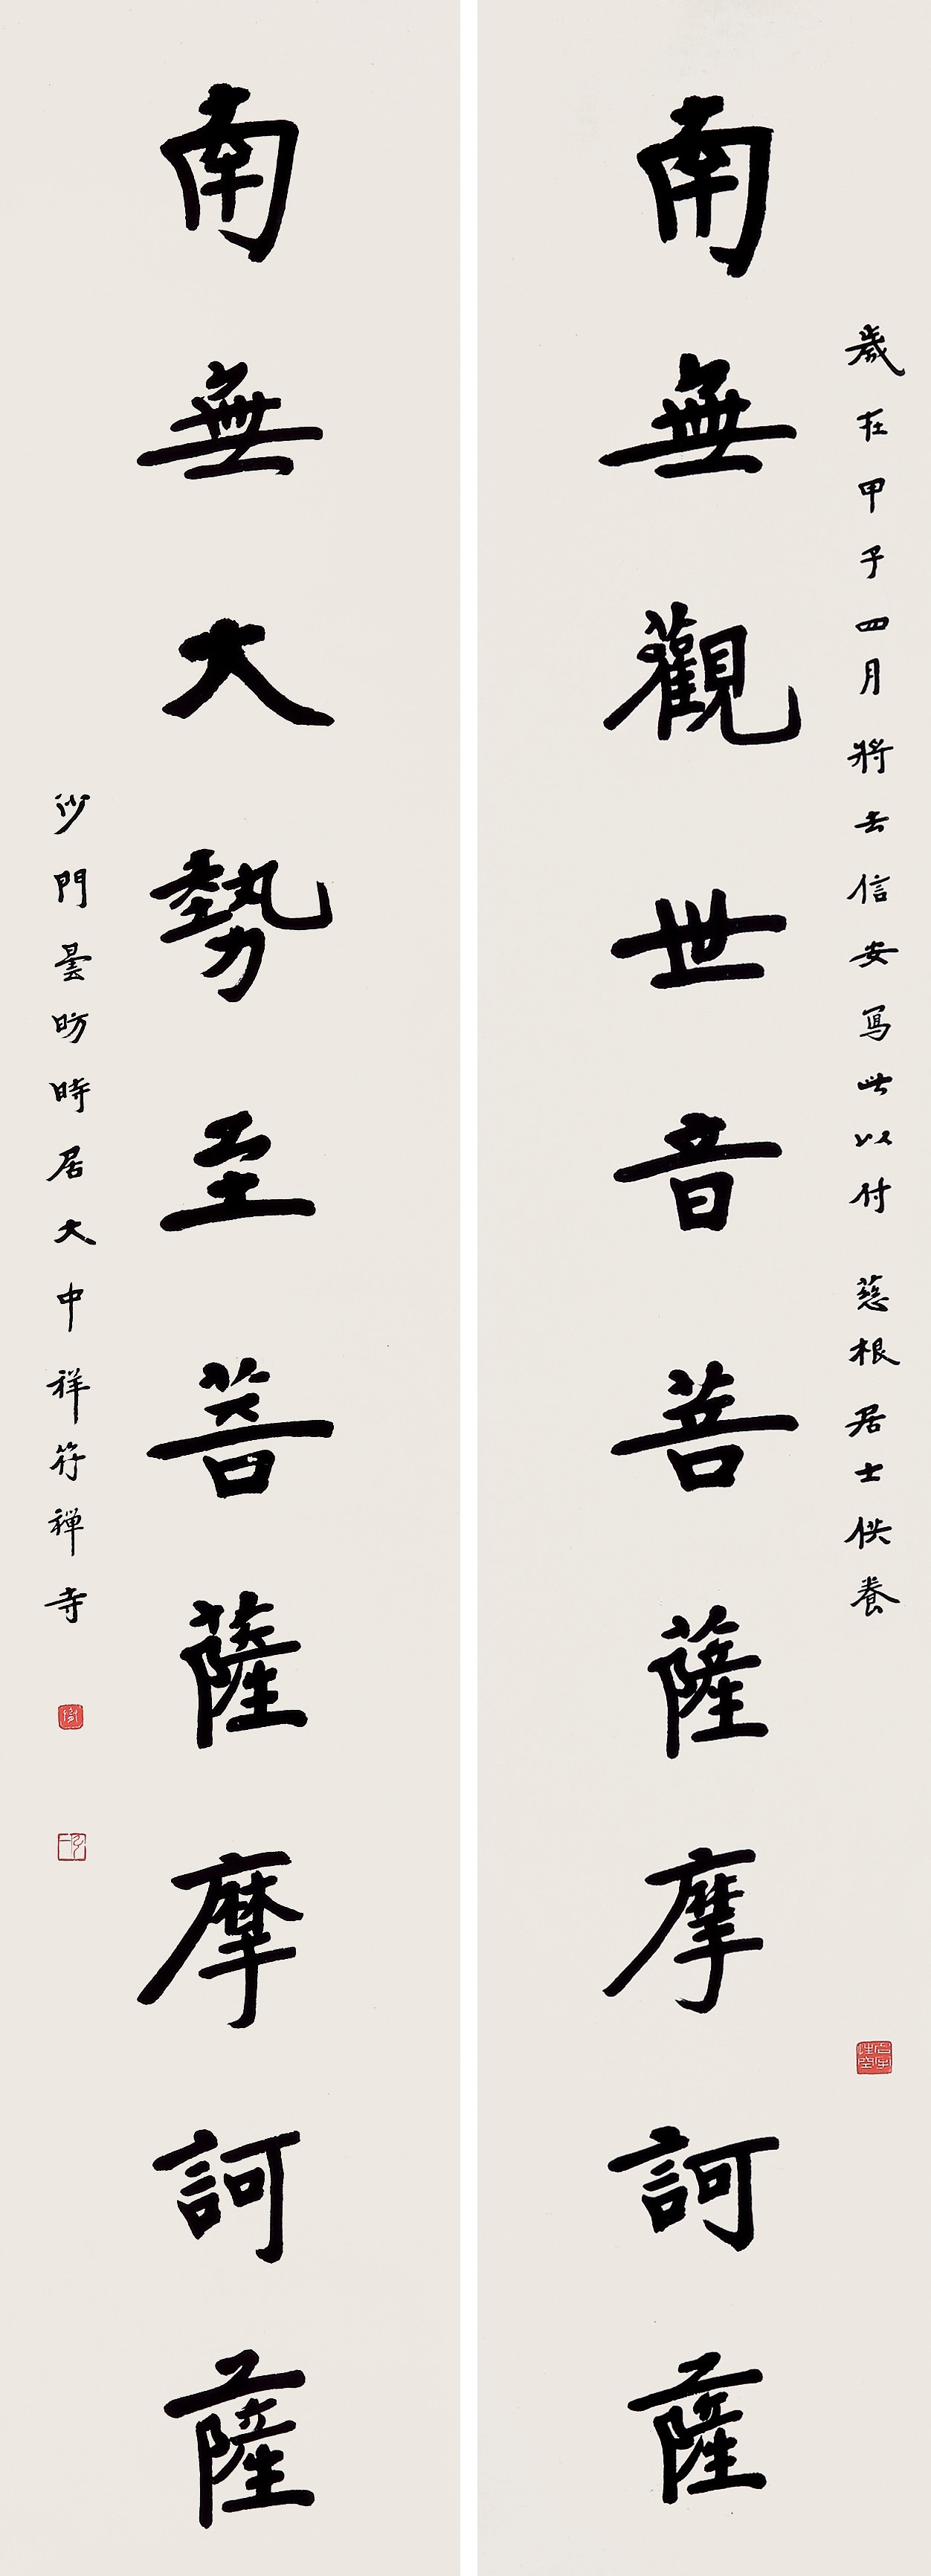 歲在甲子四月將去信安寫此以付 慈根居士供養
南無觀世音菩薩摩訶薩
南無大勢至菩薩摩訶薩
沙門曇昉時居大中祥符禪寺